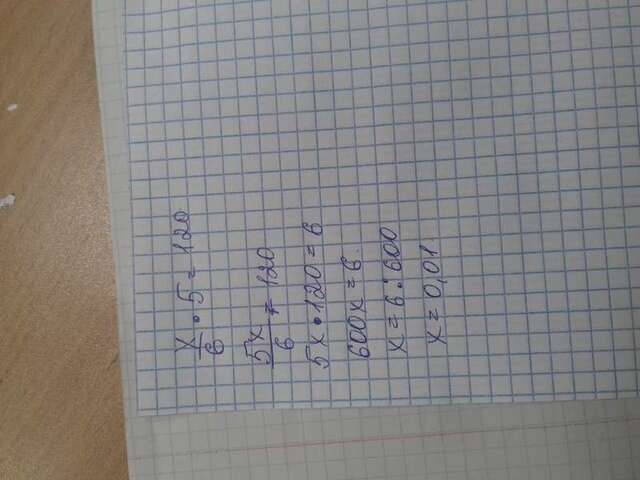 x/6 • 5 = 120
5x/6 = 120
5x • 120 = 6
600x = 6.
x = 6 : 600
x = 0,01